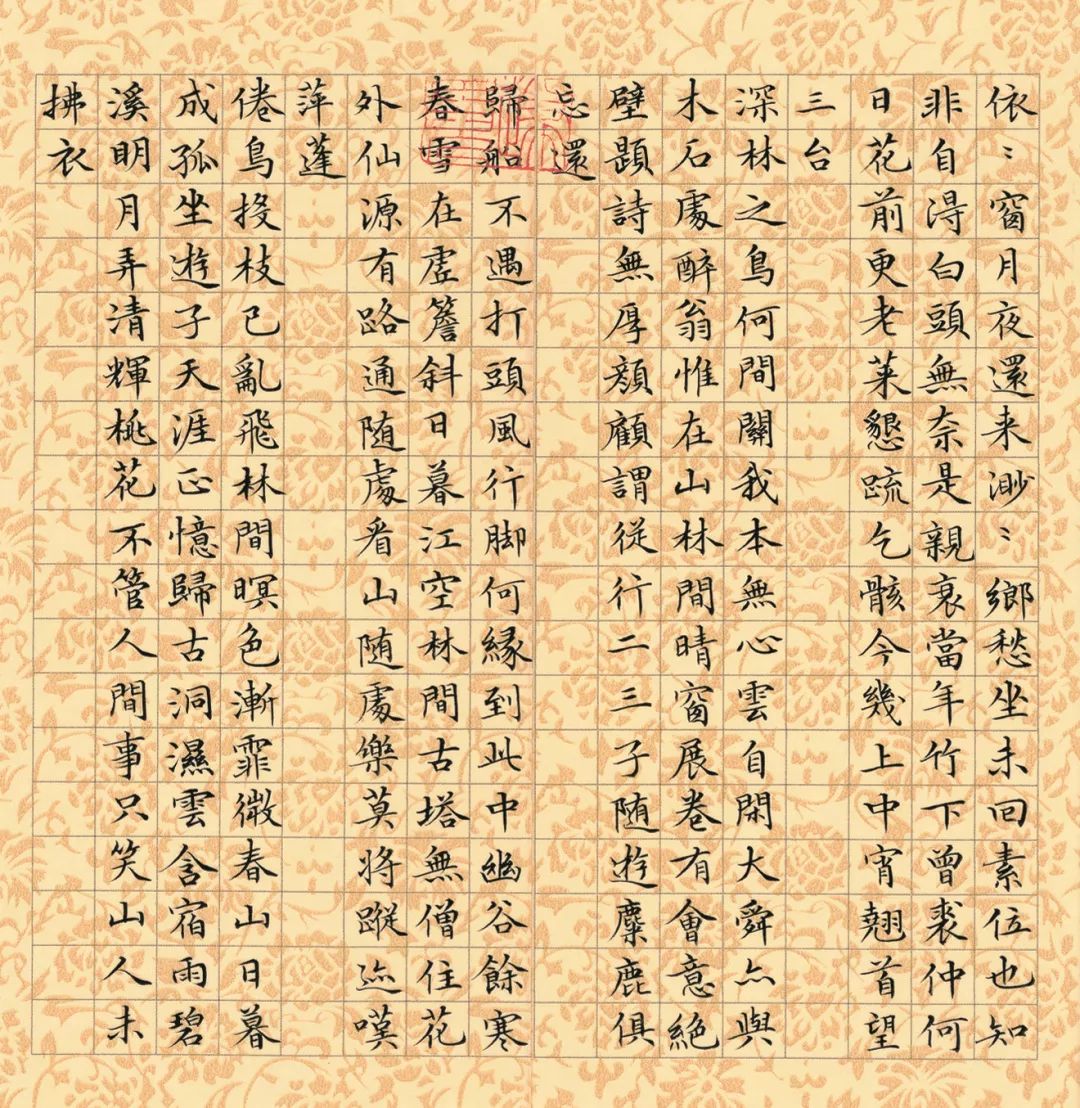 依〻窗月夜還来渺〻鄉愁坐未回素位也知
非自淂白頭無奈是親衰當年竹下曾裘仲何
日花前更老萊懇疏乞骸今幾上中宵翹首望
三台
深林之鳥何間關我本無心雲自閑大舜亦與
木石處醉翁惟在山林間晴窗展卷有會意絕
壁題詩無厚顏顧謂從行二三子随遊麋鹿俱
忘還
歸船不遇打頭風行脚何緣到此中幽谷餘寒
春雪在虛簷斜日暮江空林間古塔無僧住花
外仙源有路通随處看山随處樂莫將蹤迹嘆
萍蓬
倦鳥投枝已亂飛林間暝色漸霏微春山日暮
成孤坐遊子天涯正憶歸古洞濕雲含宿雨碧
溪明月弄清輝桃花不管人間事只笑山人未
拂衣